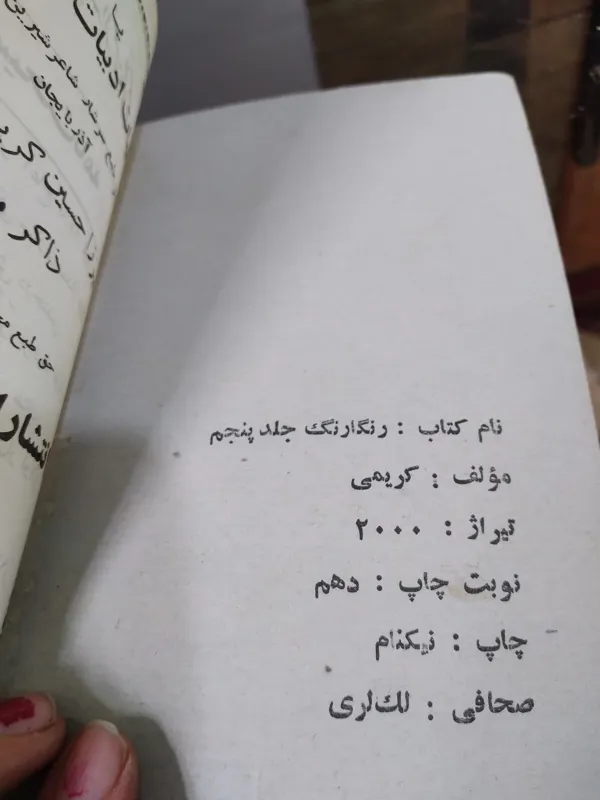 ادبیات
شاعر شیرین
آذربایجان
حسین
ذاکر
حق طبع
نام کتاب : رنگارنگ جلد پنجم
مؤلف : کریمی
تیراژ : ۲۰۰۰
نوبت چاپ : دهم
چاپ : نیکنام
صحافی : لك لری